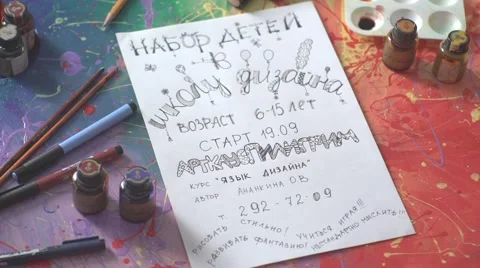 НАБОР ДЕТЕЙ
В
школу дизайна
ВОЗРАСТ 6-15 лет
СТАРТ 19.09
АРТКАНОПИЛИГРИМ
КУРС "ЯЗЫК ДИЗАЙНА"
АВТОР АНАНКИНА О.В.
т. 292-72-09
РИСОВАТЬ СТИЛЬНО! УЧИТЬСЯ ИГРАЯ!!!
РАЗВИВАТЬ ФАНТАЗИЮ! НЕСТАНДАРТНО МЫСЛИТЬ!